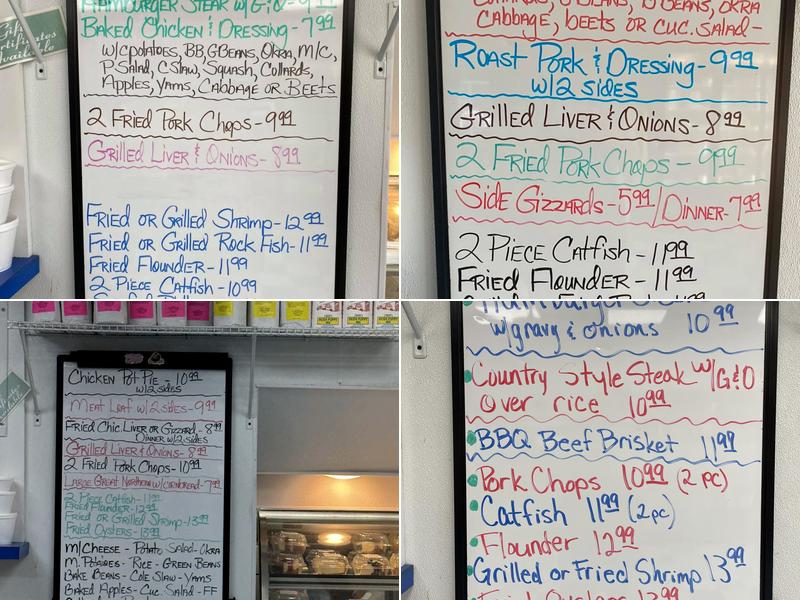 Hamburger Steak w/G&O - 9 99
Baked Chicken & Dressing - 7 99
w/cpotatoes, BB, G Beans, Okra, M/C,
P. Salad, C Slaw, Squash, Collards,
Apples, Yams, Cabbage or Beets
2 Fried Pork Chops - 9 99
Grilled Liver & Onions - 8 99
Fried or Grilled Shrimp - 12 99
Fried or Grilled Rock Fish - 11 99
Fried Flounder - 11 99
2 Piece Catfish - 10 99
Cabbage, beets or cuc. salad -
Roast Pork & Dressing - 9 99
w/2 sides
Grilled Liver & Onions - 8 99
2 Fried Pork Chops - 9 99
Side Gizzards - 5 99 / Dinner - 7 99
2 Piece Catfish - 11 99
Fried Flounder - 11 99
Chicken Pot Pie - 10 99
w/2 sides
Meat Loaf w/2 sides - 9 99
Fried Chic. Liver or Gizzard - 8 99
Dinner w/2 sides
Grilled Liver & Onions - 8 99
2 Fried Pork Chops - 10 99
Large Great Northern w/cornbread - 7 99
2 Piece Catfish - 11 99
Fried Flounder - 12 99
Fried or Grilled Shrimp - 13 99
Fried Oysters - 13 99
M/Cheese - Potato Salad - Okra
M. Potatoes - Rice - Green Beans
Bake Beans - Cole Slaw - Yams
Baked Apples - Cuc. Salad - FF
w/gravy & onions 10 99
Country Style Steak w/G&O
over rice 10 99
BBQ Beef Brisket 11 99
Pork Chops 10 99 (2 pc)
Catfish 11 99 (2pc)
Flounder 12 99
Grilled or Fried Shrimp 13 99
Fried Oysters 13 99